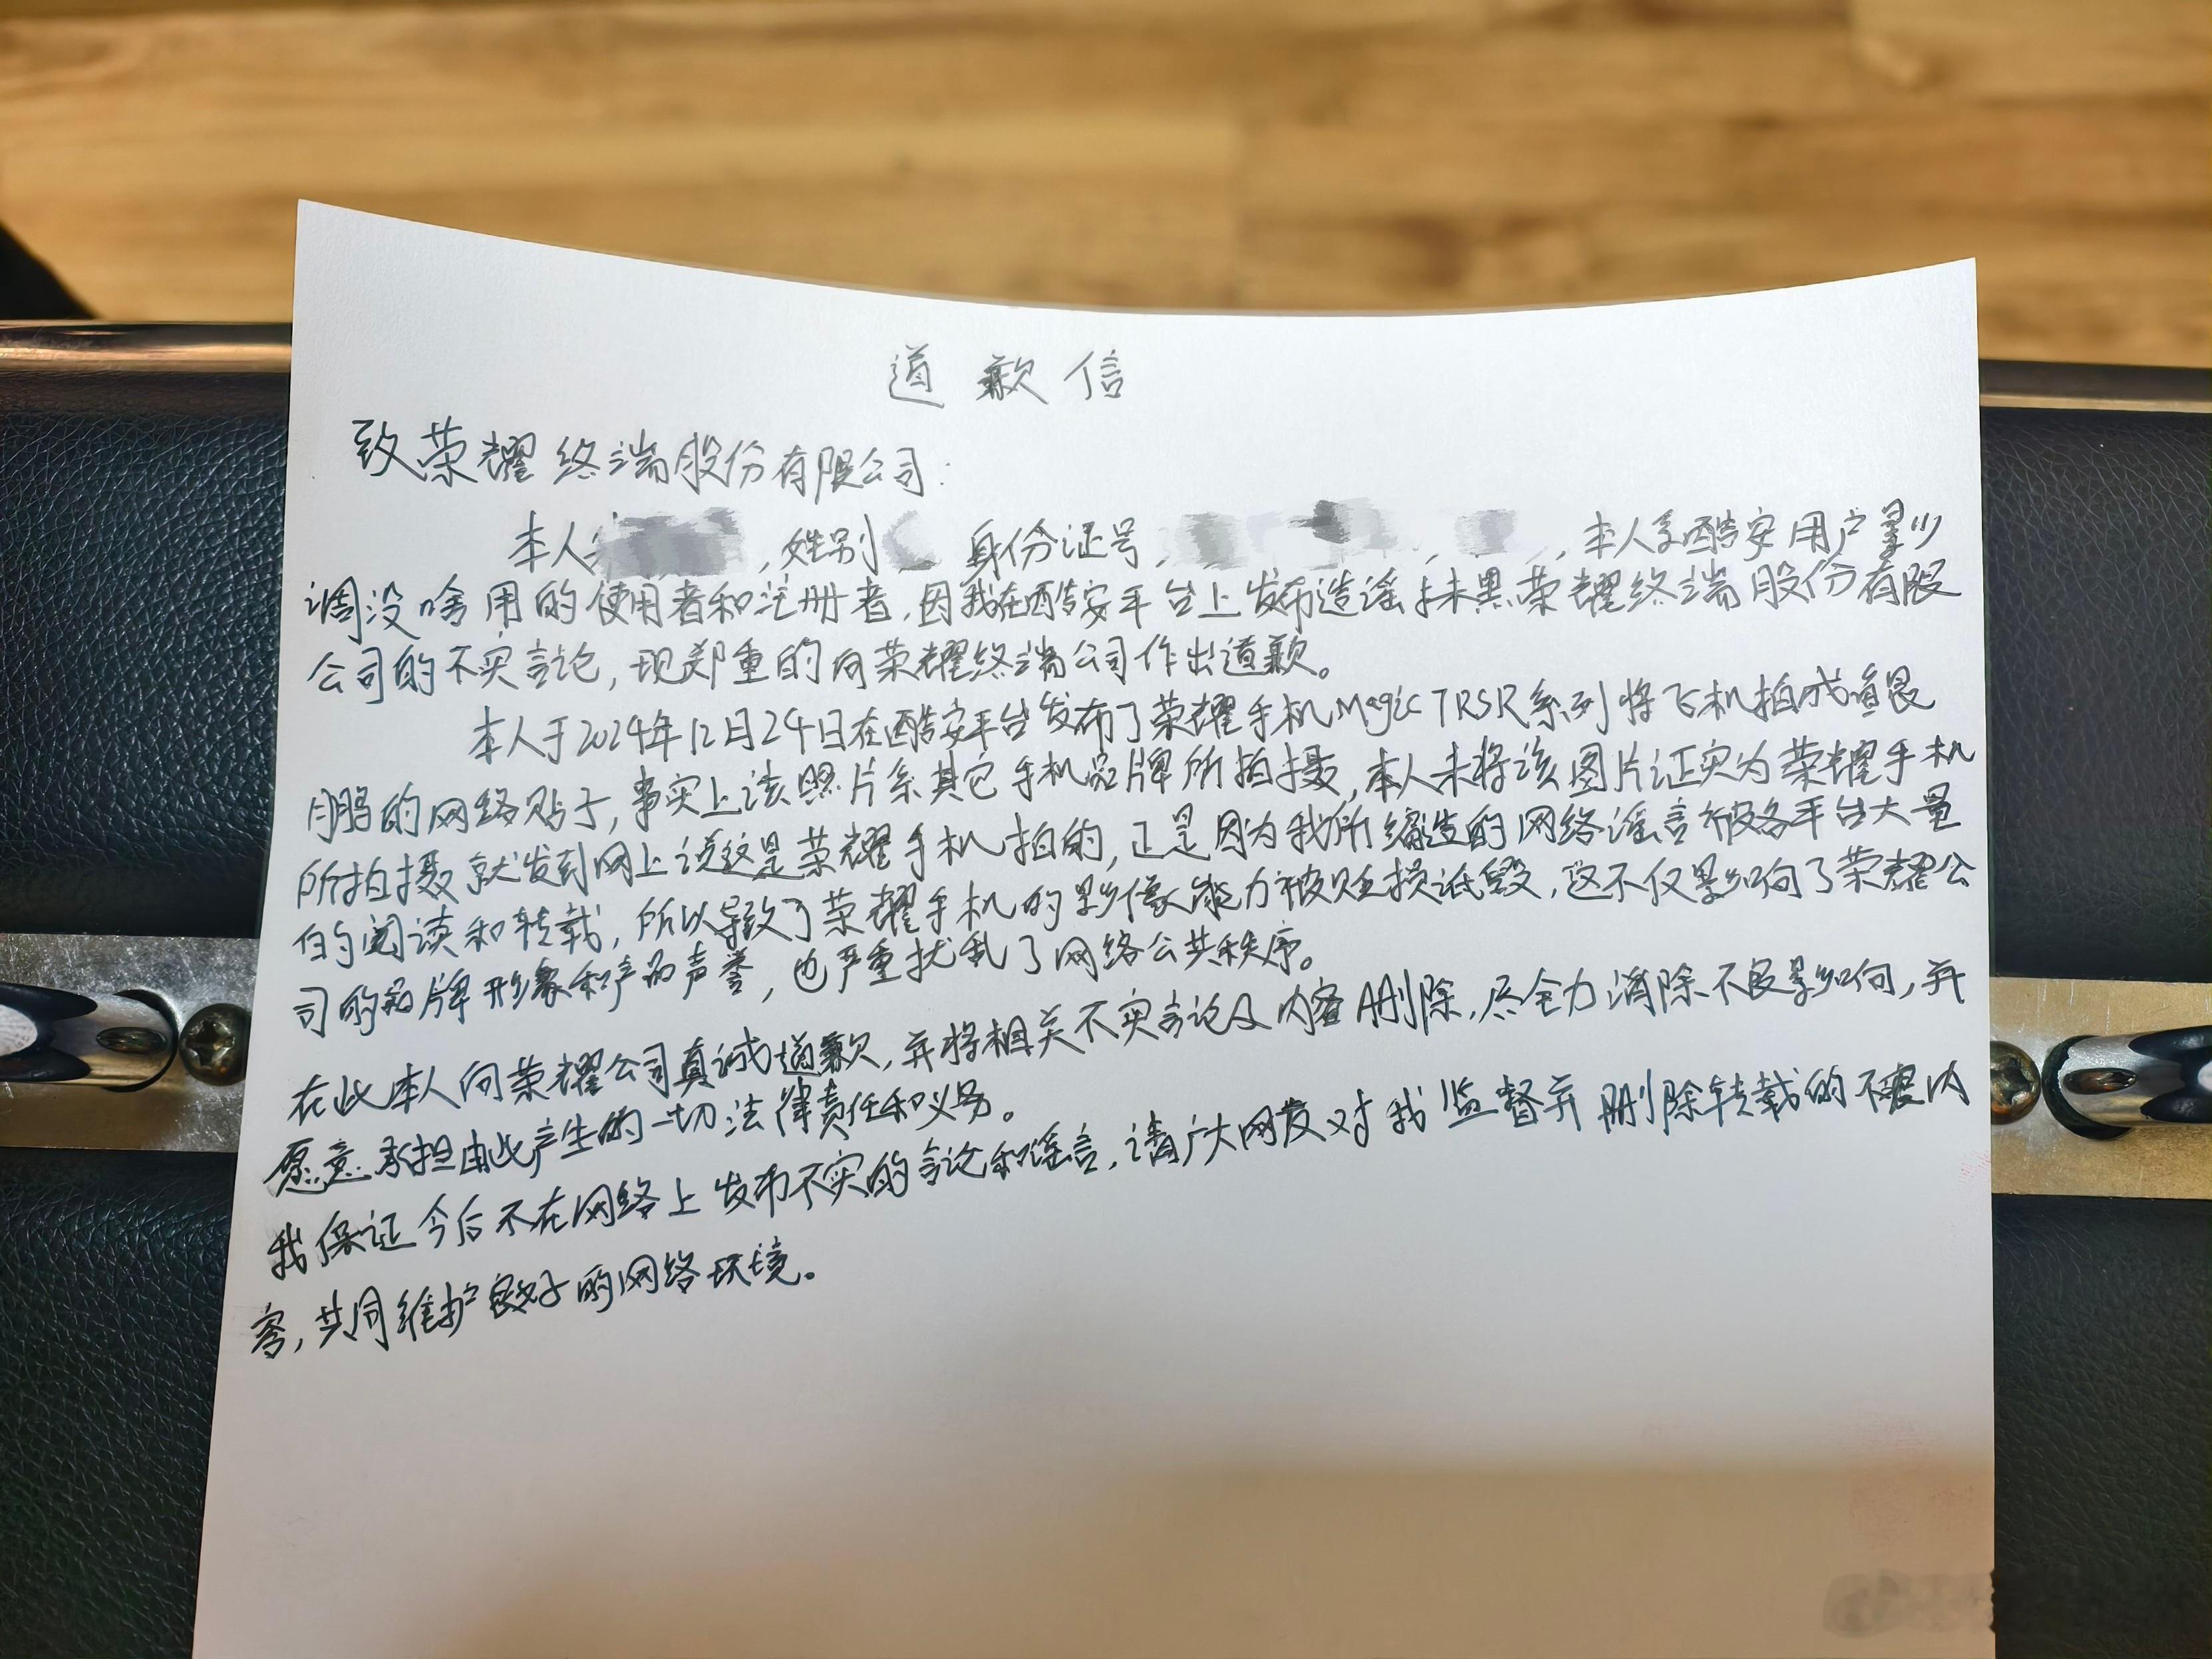 道歉信
致荣耀终端股份有限公司:
本人 ,姓别 身份证号, , ,本人系酷安用户
调没啥用的使用者和注册者,因我在酷安平台上发布造谣抹黑荣耀终端股份有限
公司的不实言论,现郑重的向荣耀终端公司作出道歉。
本人于2024年12月24日在酷安平台发布了荣耀手机Magic7RSR系列将飞机拍成
鹏的网络贴子,事实上该照片系其它手机品牌所拍摄,本人未将该图片证实为荣耀手机
所拍摄就发到网上说这是荣耀手机拍的,正是因为我所编造的网络谣言被各平台大量
的阅读和转载,所以导致了荣耀手机的影像能力被贬损诋毁,这不仅影响了荣耀公
司的品牌形象和产品声誉,也严重扰乱了网络公共秩序。
在此本人向荣耀公司真诚道歉,并将相关不实言论及内容删除,尽全力消除不良影响,并
愿意承担由此产生的一切法律责任和义务。
我保证今后不在网络上发布不实的言论和谣言,请广大网友对我监督并删除转载的不实内
容,共同维护良好的网络环境。